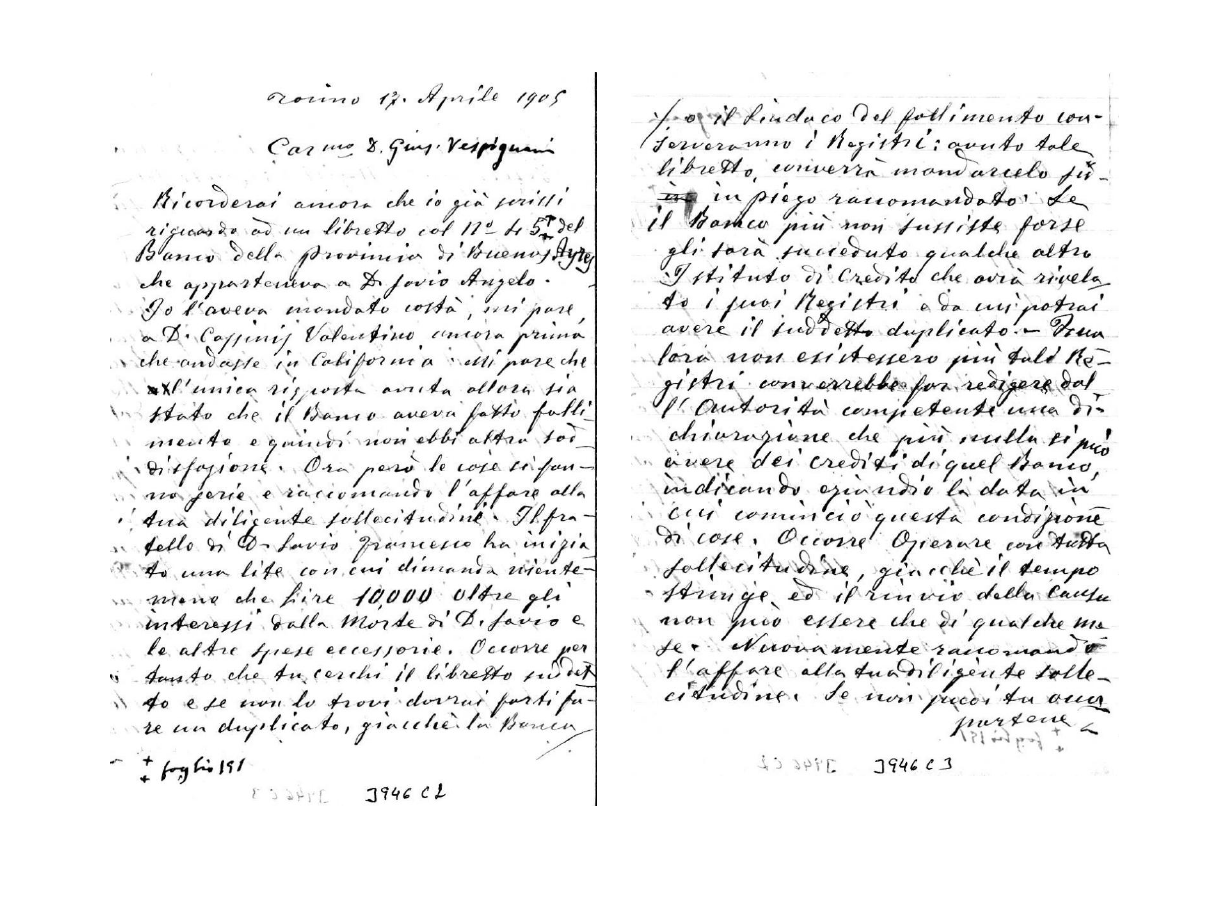 Torino 17. Aprile 1905
Car.mo D. Gius. Vespignani
Ricorderai ancora che io già scrissi
riguardo ad un libretto col Nº 45 del
Banco della Provincia di Buenos Ayres
che apparteneva a D. Savio Angelo.
Io l'aveva mandato costà, mi pare,
a D. Cassinis Valentino ancora prima
che andasse in California. Mi pare che
l'unica risposta avuta allora sia
stato che il Banco aveva fatto falli
mento e quindi non ebbi altra sod
disfazione. Ora però le cose si fan-
no serie e raccomando l'affare alla
tua diligente sollecitudine. Il fra-
tello di D. Savio Francesco ha inizia
to una lite con cui dimanda niente-
meno che Lire 10,000 oltre gli
interessi dalla Morte di D. Savio e
le altre spese eccessorie. Occorre per
tanto che tu cerchi il libretto suddet
to e se non lo trovi dovrai farti fa-
re un duplicato, giacchè la Banca
foglio 191
J946 C2
/ o il Sindaco del fallimento con-
serveranno i Registri: avuto tale
libretto, converrà mandarcelo
in piego raccomandato. Se
il Banco più non sussiste forse
gli sarà succeduto qualche altro
Istituto di Credito che avrà rivela
to i suoi Registri e da cui potrai
avere il suddetto duplicato. -
lora non esistessero più tali Re-
gistri converrebbe far redigere dal
l'Autorità competente una di-
chiarazione che più nulla si può
avere dei crediti di quel Banco,
indicando eziandio la data in
cui cominciò questa condizione
di cose. Occorre Operare con tutta
sollecitudine, giacchè il tempo
stringe, ed il rinvio della Causa
non può essere che di qualche me
se. Nuovamente raccomando
l'affare alla tua diligente solle-
citudine. Se non puoi tu
J946 C3